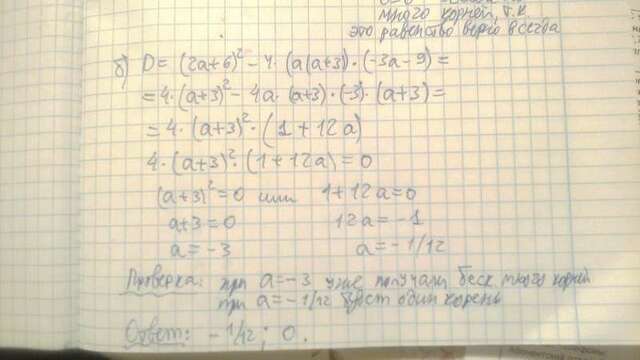 много корней, т.к
это равенство верно всегда
б) D = (2a+6)² - 4·(a(a+3))·(-3a-9) =
= 4·(a+3)² - 4a·(a+3)·(-3)·(a+3) =
= 4·(a+3)²·(1+12a)
4·(a+3)²·(1+12a) = 0
(a+3)² = 0 или 1+12a = 0
a+3 = 0 12a = -1
a = -3 a = -1/12
Проверка: при a = -3 уже получали беск много корней
при a = -1/12 будет один корень
Ответ: -1/12; 0.